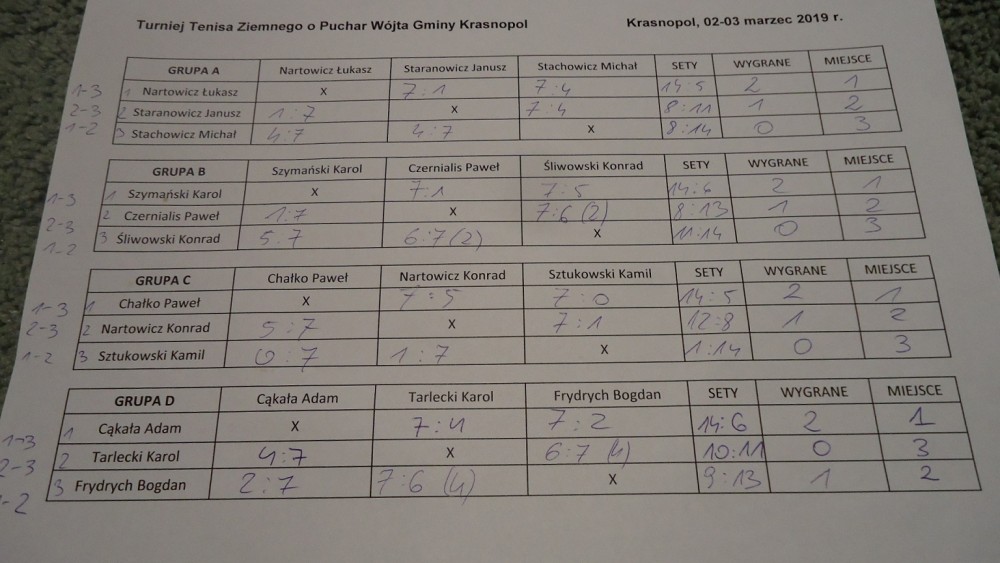 Turniej Tenisa Ziemnego o Puchar Wójta Gminy Krasnopol Krasnopol, 02-03 marzec 2019 r.
GRUPA A Nartowicz Łukasz Staranowicz Janusz Stachowicz Michał SETY WYGRANE MIEJSCE
1-3 1 Nartowicz Łukasz X 7:1 7:4 14:5 2 1
2-3 2 Staranowicz Janusz 1:7 X 7:4 8:11 1 2
1-2 3 Stachowicz Michał 4:7 4:7 X 8:14 0 3
GRUPA B Szymański Karol Czernialis Paweł Śliwowski Konrad SETY WYGRANE MIEJSCE
1-3 1 Szymański Karol X 7:1 7:5 14:6 2 1
2-3 2 Czernialis Paweł 1:7 X 7:6 (2) 8:13 1 2
1-2 3 Śliwowski Konrad 5:7 6:7 (2) X 11:14 0 3
GRUPA C Chałko Paweł Nartowicz Konrad Sztukowski Kamil SETY WYGRANE MIEJSCE
1-3 1 Chałko Paweł X 7:5 7:0 14:5 2 1
2-3 2 Nartowicz Konrad 5:7 X 7:1 12:8 1 2
1-2 3 Sztukowski Kamil 0:7 1:7 X 1:14 0 3
GRUPA D Cąkała Adam Tarlecki Karol Frydrych Bogdan SETY WYGRANE MIEJSCE
1-3 1 Cąkała Adam X 7:4 7:2 14:6 2 1
2-3 2 Tarlecki Karol 4:7 X 6:7 (4) 10:11 0 3
1-2 3 Frydrych Bogdan 2:7 7:6 (4) X 9:13 1 2